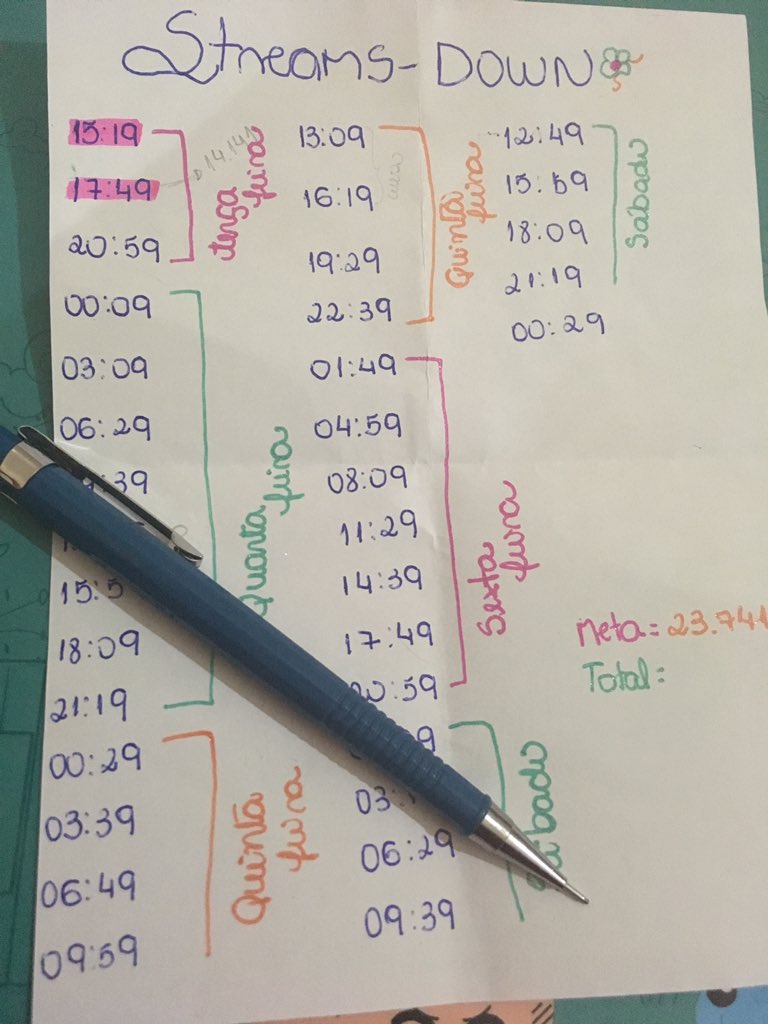 Streams - DOWN
15:19
17:49
14.141
20:59
terça
feira
00:09
03:09
06:29
15:5
18:09
21:19
Quarta
feira
00:29
03:39
06:49
09:59
Quinta
feira
13:09
16:19
19:29
22:39
Quinta
feira
01:49
04:59
08:09
11:29
14:39
17:49
20:59
Sexta
feira
03:
06:29
09:39
12:49
15:59
18:09
21:19
00:29
Sábado
meta = 23.741
Total: